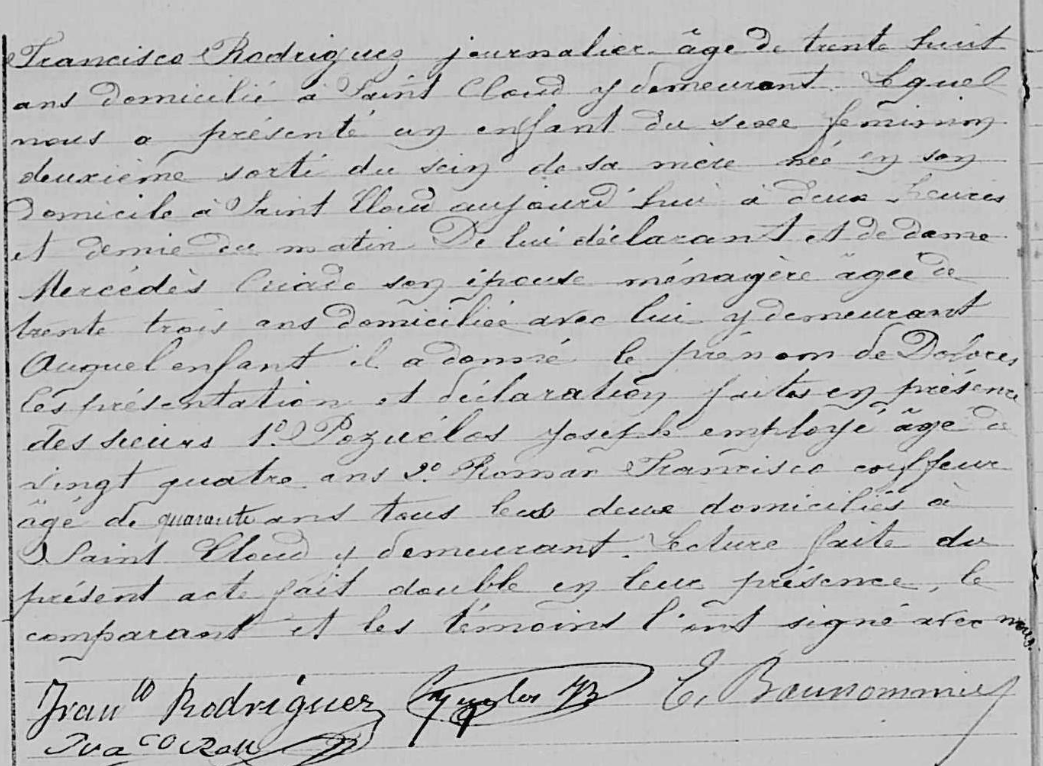 Francisco Rodriguez journalier âgé de trente huit
ans domicilié à Saint Cloud y demeurant. Lequel
nous a présenté un enfant du sexe féminin
deuxième sorti du sein de sa mère née en son
domicile à Saint Cloud aujourd'hui à deux heures
et demie du matin De lui déclarant et de dame
Mercédès Criado son épouse ménagère âgée de
trente trois ans domiciliée avec lui y demeurant
Auquel enfant il a donné le prénom de Dolores
les présentation et déclaration faites en présence
des sieurs 1º Pozuélos Joseph employé âgé de
vingt quatre ans 2º Roman Francisco coiffeur
âgé de quarante ans tous les deux domiciliés à
Saint Cloud y demeurant. Lecture faite du
présent acte fait double en leur présence, le
comparant et les témoins l'ont signé avec nous.
Franco Rodriguez E. Bounommie
Franco Rom